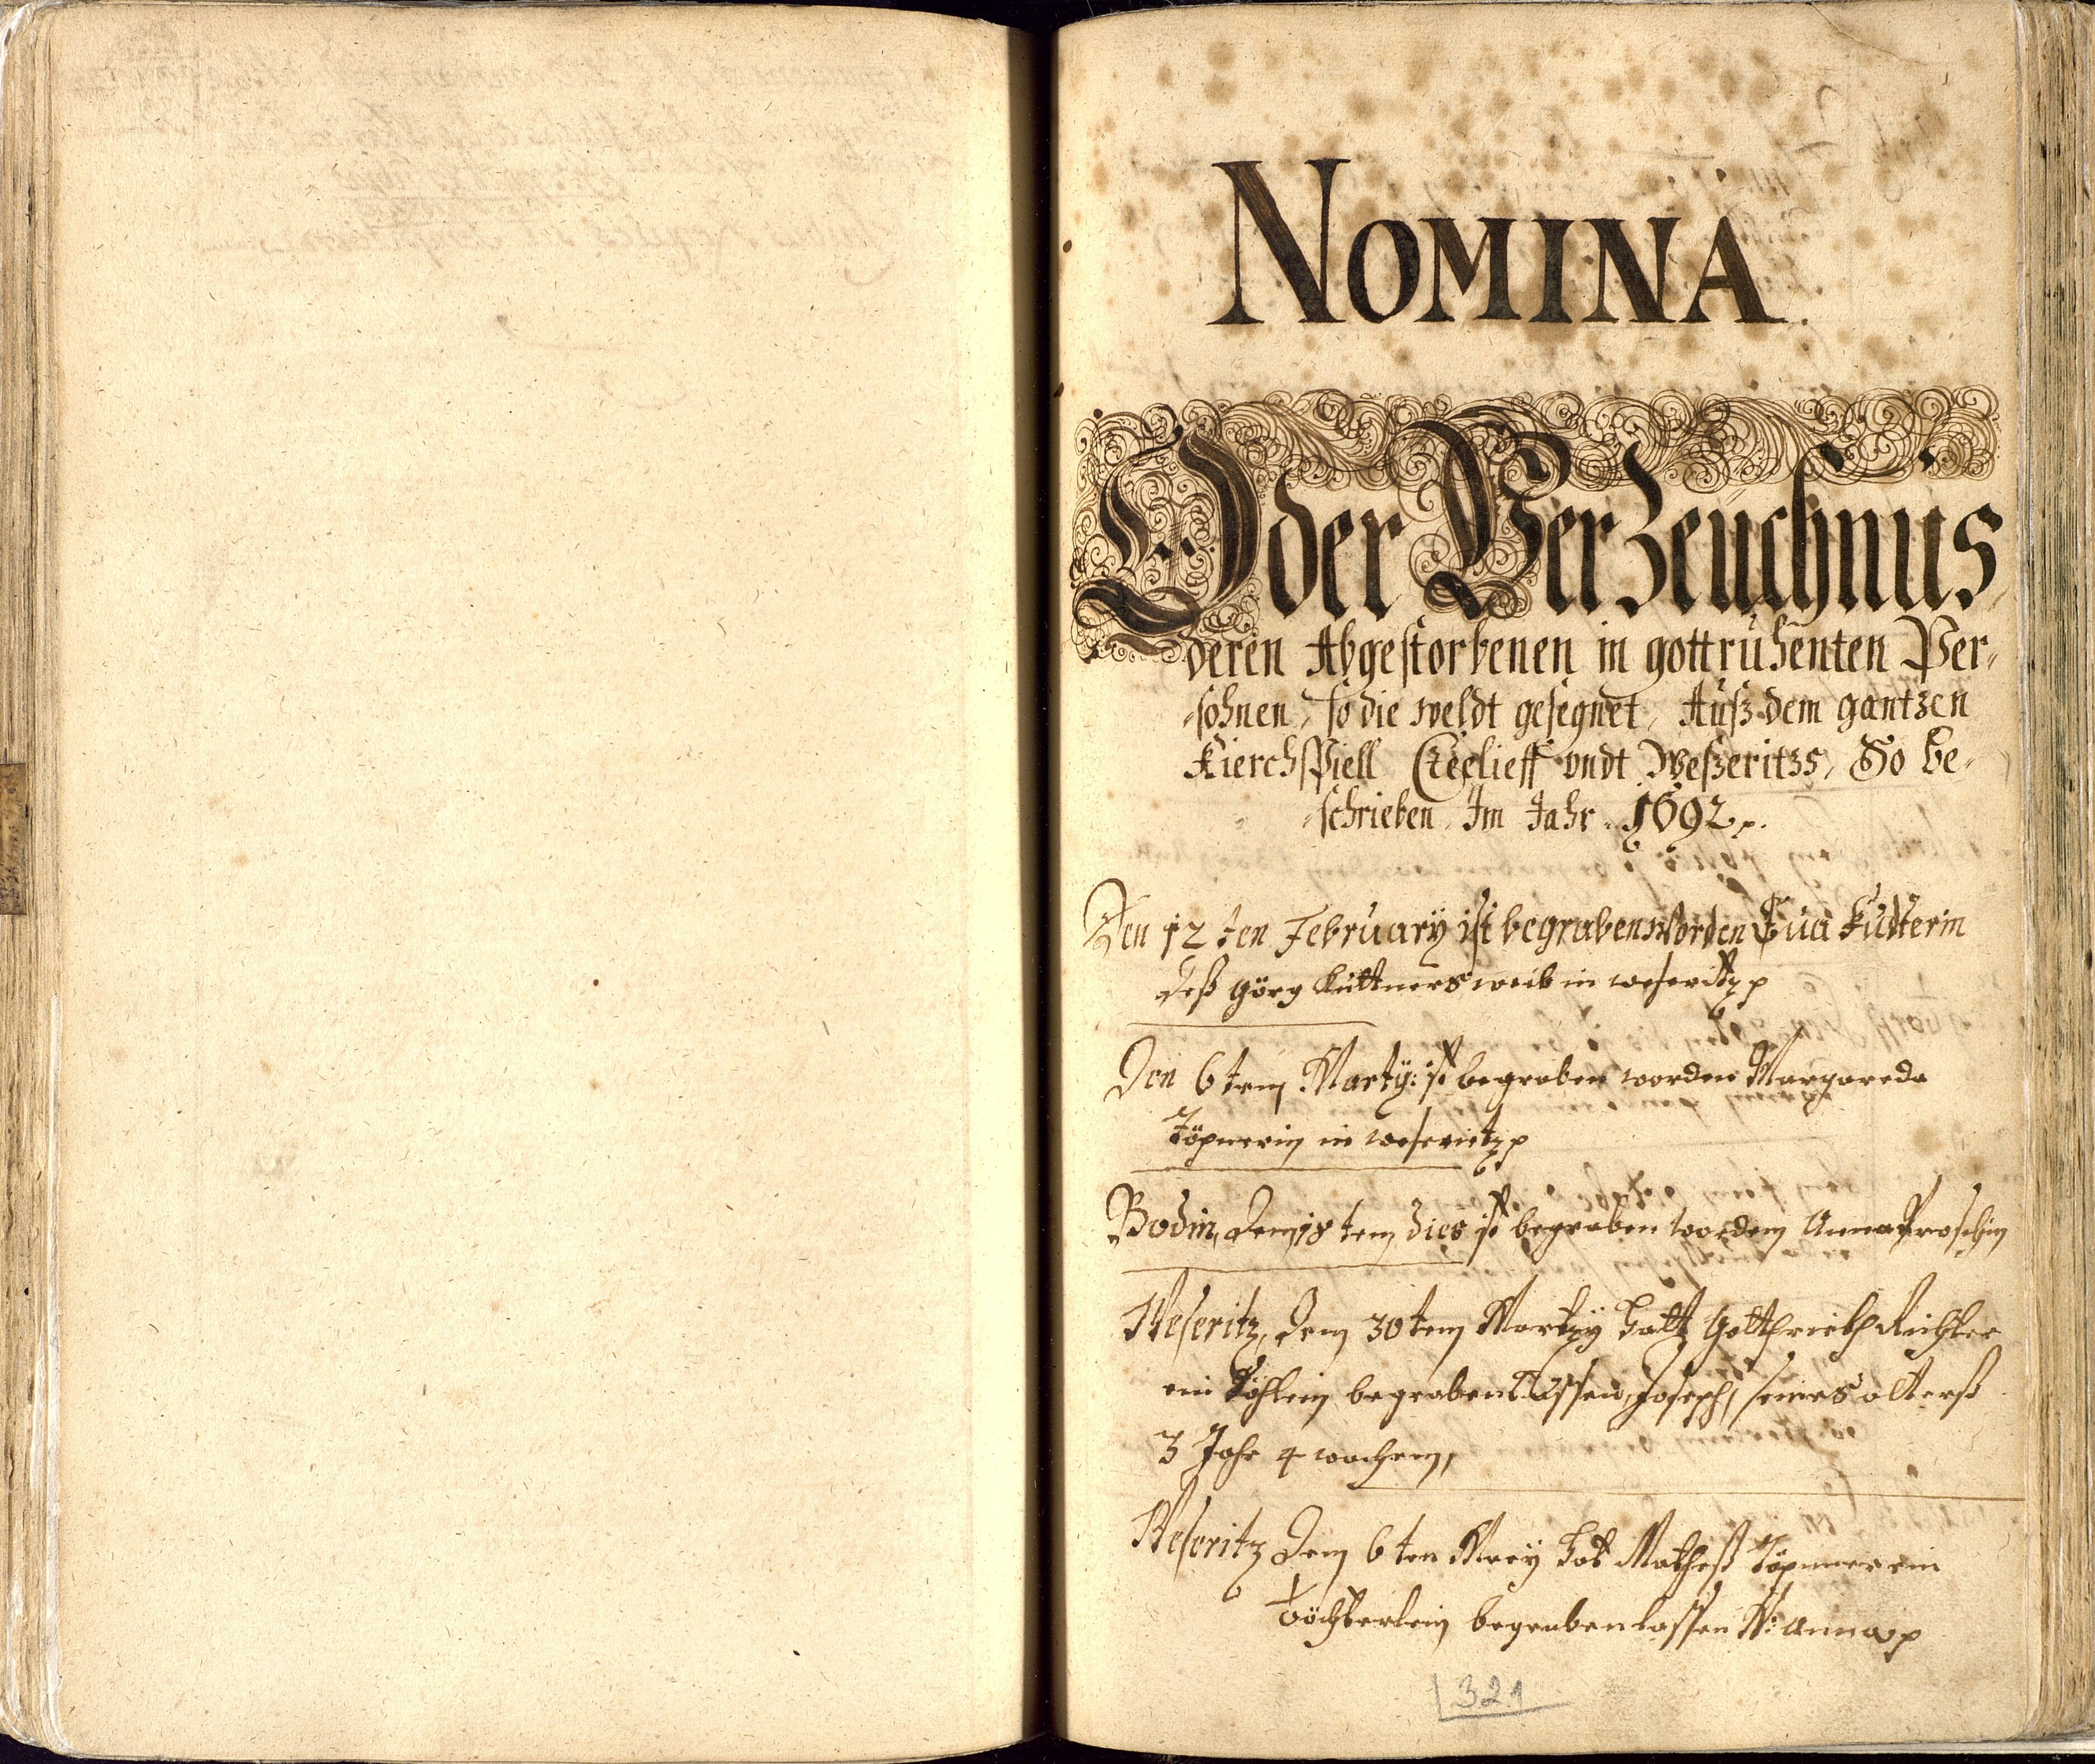 NOMINA.
Oder Verzeuchnus
deren Abgestorbenen in gott ruhenten Per-
-sohnen, so die weldt gesegnet, Auß dem gantzen
Kierchspiell undt Weßeritzs, So be-
-schrieben Im Jahr 1692 p.
Den 12 ten February ist begraben worden Eua Kudterin
deß Görg Küttners weib in weseritz p
Den 6 ten Marty: ist begraben worden Margareda
Töpnerin in weserietz p
Bodin, den 18 ten dies ist begraben worden Anna
Weseritz, den 30 ten Martzy hatt Gottfrieth Richter
ein Söhlein begraben lassen, Joseph, seines alterß
3 Jahr 4 wochen,
Weseritz den 6 ten Mey hat Matheß Töpner ein
töchterlein begraben lassen N: Anna p
321